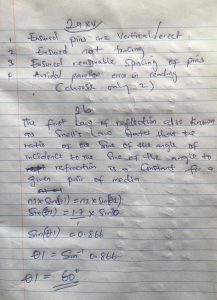 2a xv
1. Ensured pins are vertical/erect
2 Ensured neat tracing
3 Ensured reasonable spacing of pins
4 Avoided parallax error in reading
(choose only 2)
2b
The first law of reflection also known
as Snell's Law states that the
ratio of the sine of the angle of
incidence to the sine of the angle to
refraction is a constant for a
given pair of media
n1 x Sin(θ1) = n2 x sin(θ2)
Sin(θ1) = 1.7/1 x Sin30
Sin(θ1) = 0.866
θ1 = Sin⁻¹ 0.866
θ1 = 60°